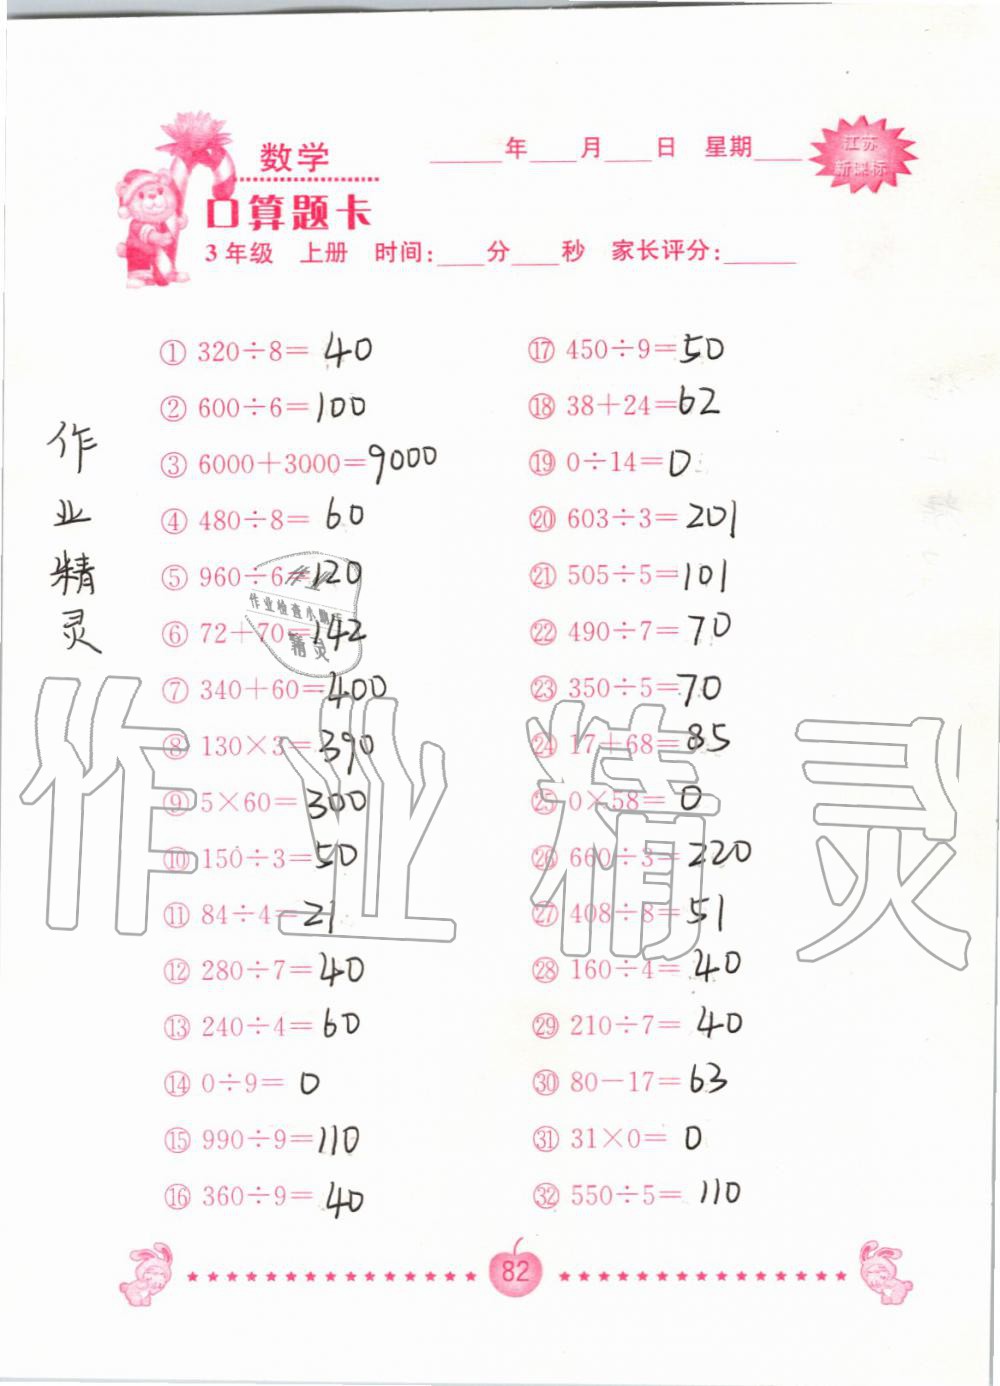 数学
____年____月____日 星期____
江苏
新课标
口算题卡
3年级 上册 时间:____分____秒 家长评分:______
① 320÷8= 40
② 600÷6=100
③ 6000+3000=9000
④ 480÷8= 60
⑤ 960÷6=120
⑥ 72+70=142
⑦ 340+60=400
⑧ 130×3=390
⑨ 5×60=300
⑩ 150÷3=50
⑪ 84÷4=21
⑫ 280÷7=40
⑬ 240÷4=60
⑭ 0÷9= 0
⑮ 990÷9=110
⑯ 360÷9= 40
⑰ 450÷9=50
⑱ 38+24=62
⑲ 0÷14=0
⑳ 603÷3=201
㉑ 505÷5=101
㉒ 490÷7=70
㉓ 350÷5=70
㉔ 17+68=85
㉕ 0×58=0
㉖ 660÷3=220
㉗ 408÷8=51
㉘ 160÷4=40
㉙ 210÷7= 40
㉚ 80-17=63
㉛ 31×0= 0
㉜ 550÷5= 110
作业精灵
作业检查小助手
精灵
作业精灵
82